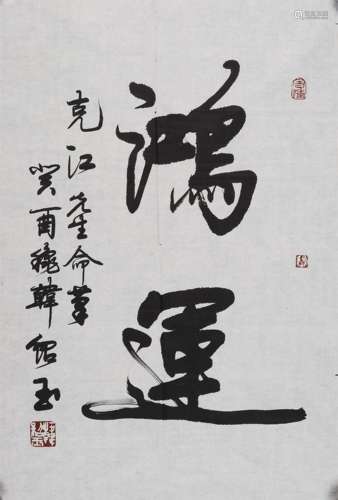 鴻運
克江先生命筆
癸酉龝韓紹玉